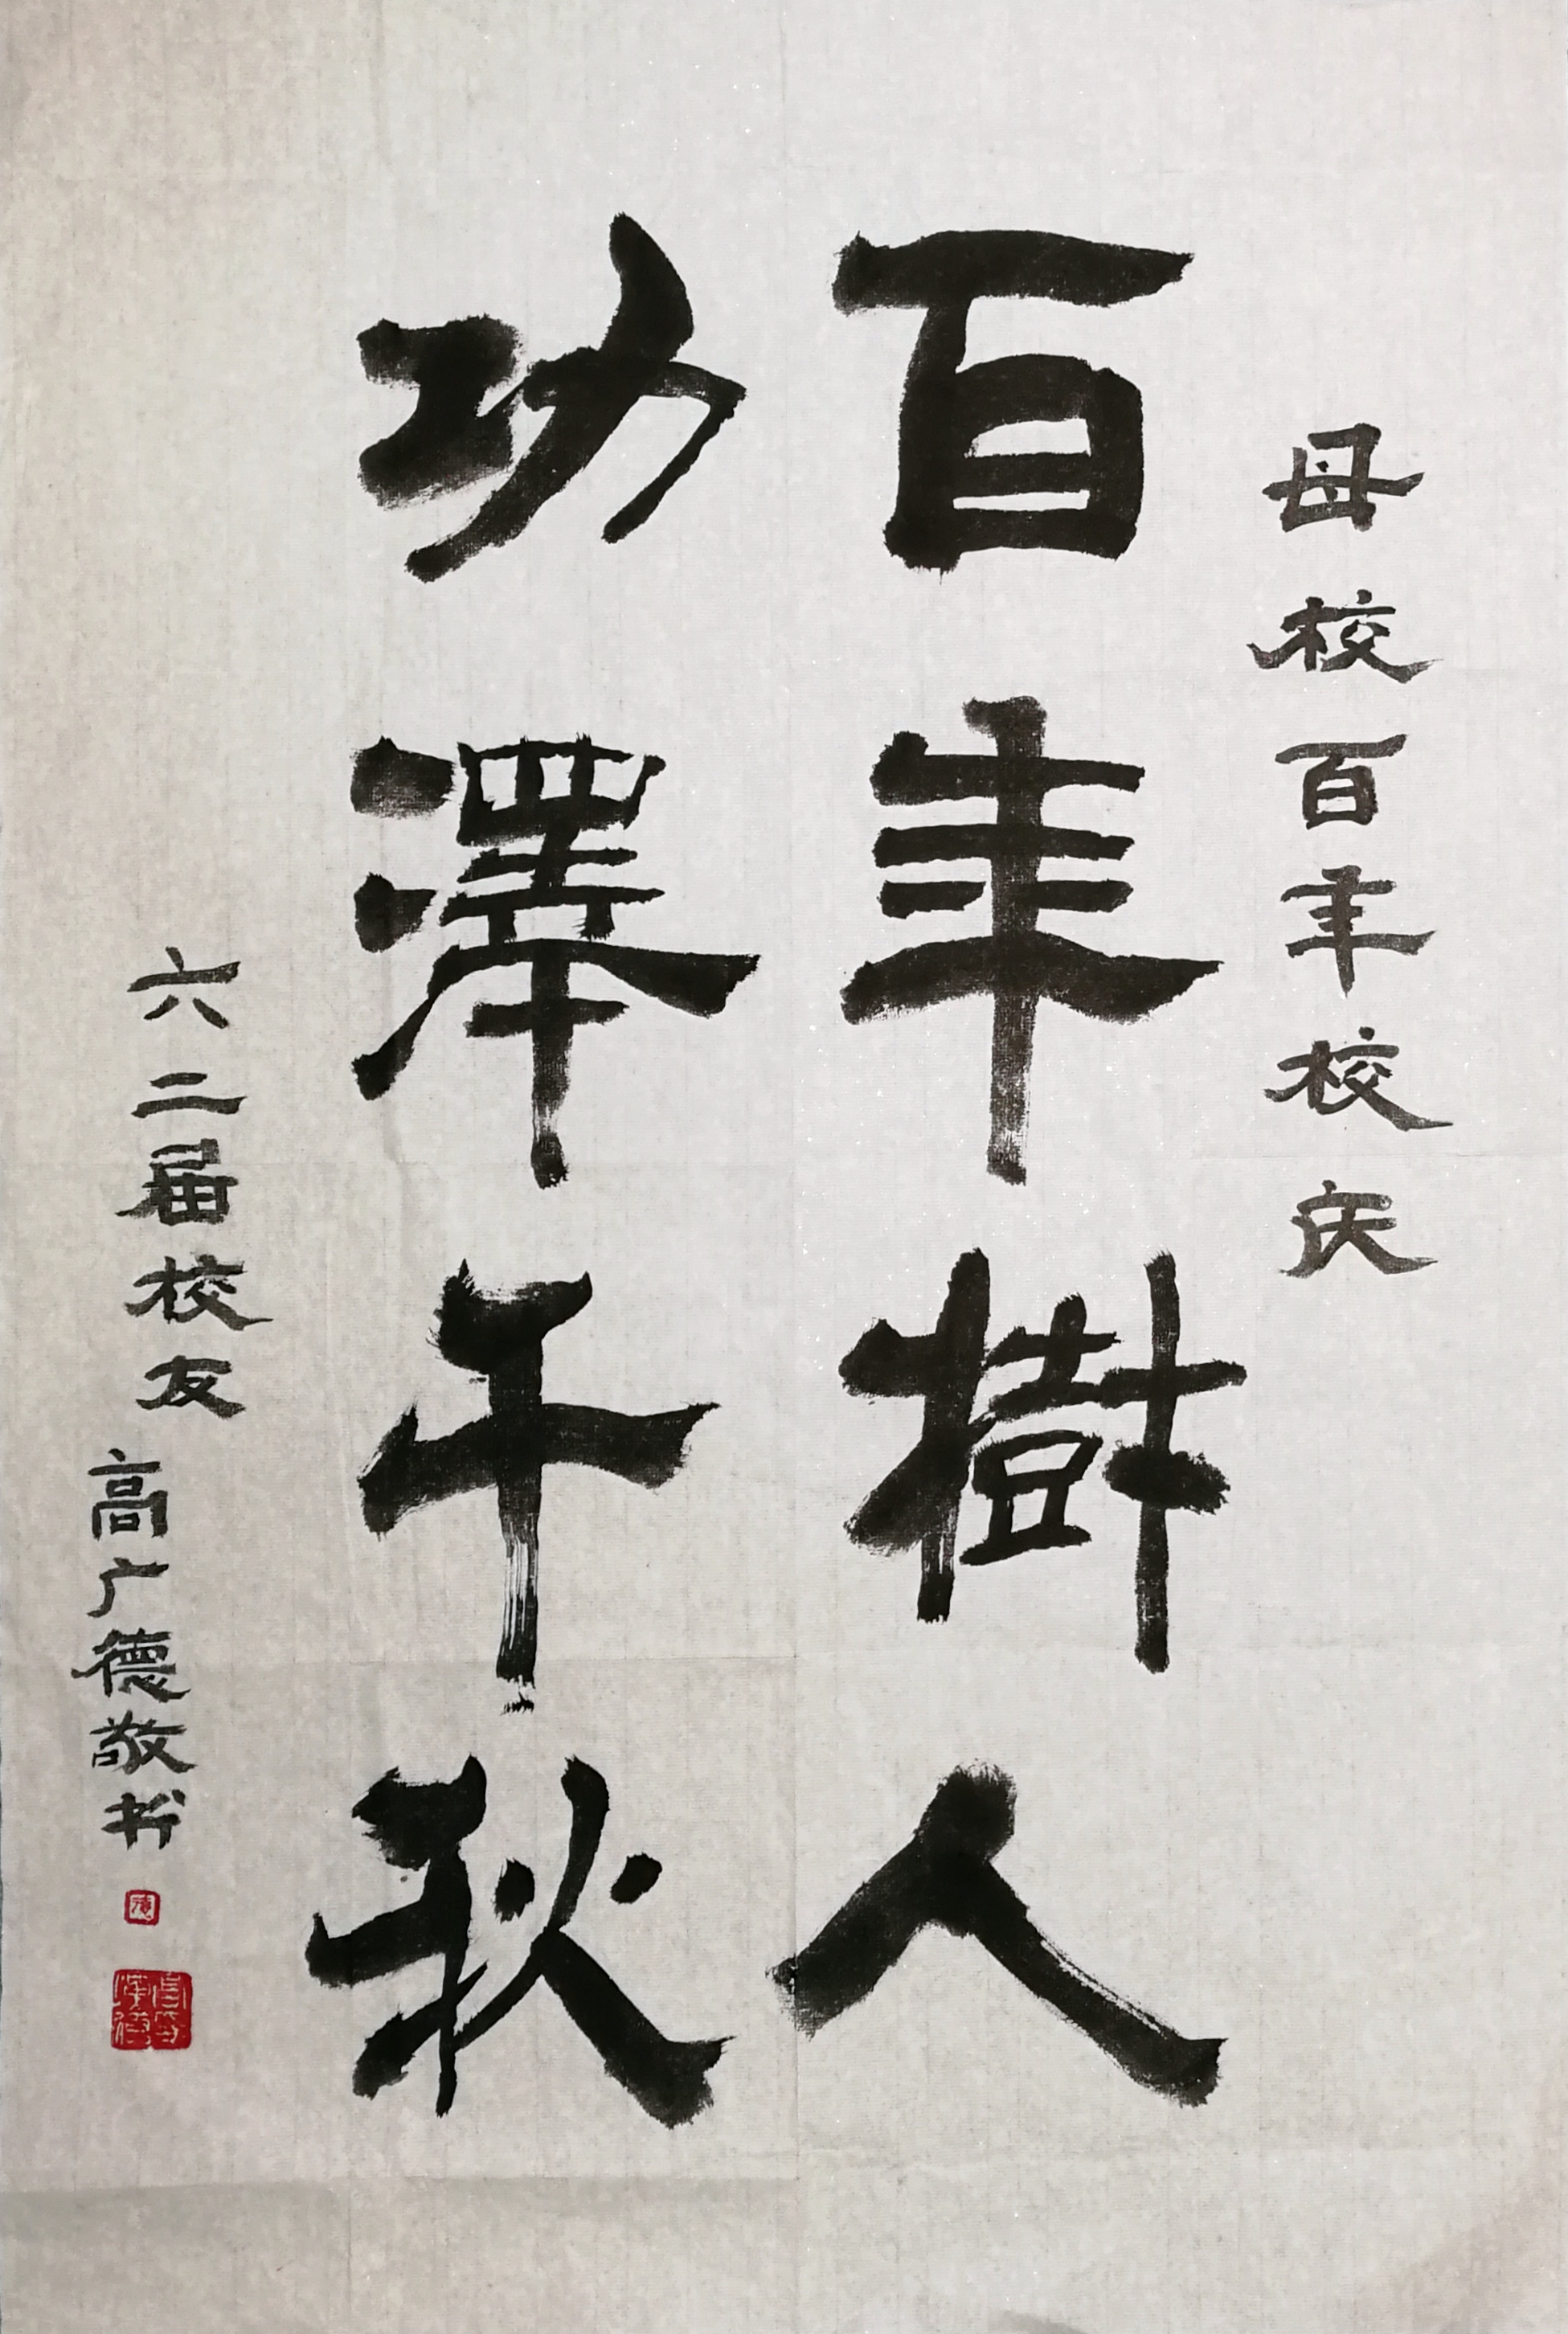 母校百年校庆
百年樹人
功澤千秋
六二届校友
高广德敬书